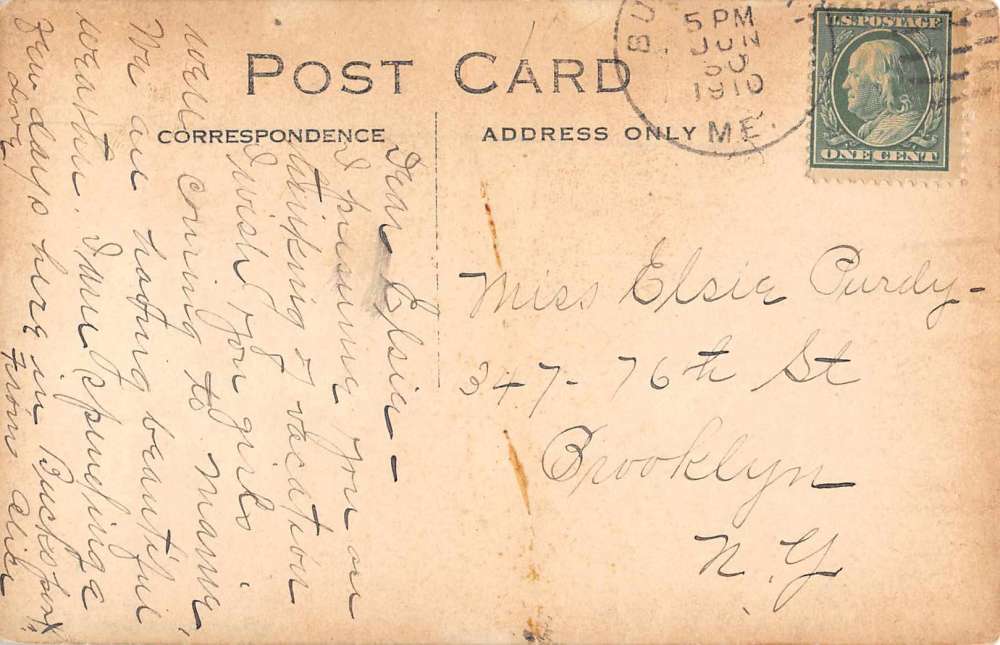 POST CARD
CORRESPONDENCE
ADDRESS ONLY
5 PM
JUN
30
1910
ME.
U.S. POSTAGE
ONE CENT
Dear Elsie -
I presume you are
thinking of vacation
I wish you girls
were coming to Maine.
We are having beautiful
weather. I am spending a
few days here in Bucksport.
Love from
Miss Elsie Purdy -
347 - 76th St
Brooklyn
N.Y